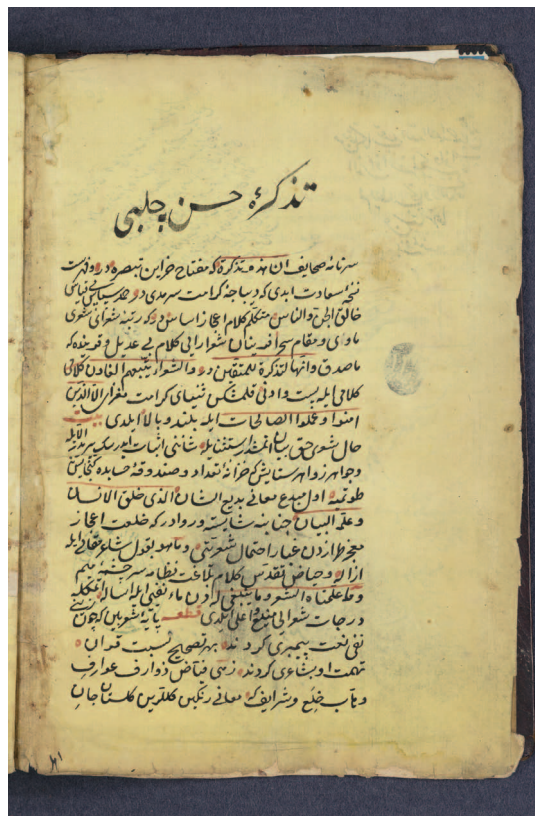 تذكرۀ حسن چلبی
سرنامۀ صحایف ان هذه تذكرة كه مفتاح خزاین تبصره در و فهرست
نسخۀ سعادت ابدی كه دیباجۀ كرامت سرمدی در حمد سپاس بی قیاس
خالق الجن والناس متكلم كلام اعجاز اساس در كه رتبۀ شعرای شعری
ماوای و مقام سحر آفرینان شعر ارایی كلام بی عدیل و قرینده كه
ماصدق وانها لتذكرة للمتقین در والشعراء یتبعهم الغاون كلامی
كلامی ایله پست وادنی قلمشكن ثنیای كرامت الا الذین
امنوا وعملوا الصالحات ایله بلند و بالا ایلدی بیت
حال شعری حق بیان اتمشدر استثنایله شاننی اثبات ایدر
وجواهر زواهر ستایش كه خزانۀ تعداد و صندوقۀ حسابده
طوتمیه اول مبدع معانی بدیع الشان الذی خلق الانسان
وعلم البیان جنابنه شایسته و روادر كه خلعت اعجاز
طرازدن غبار احتمال شعریتی وماهو بقول شاعر ایله
ازاله وحیاض تقدس كلام بلاغت نظامه
وما علمناه الشعر وما ینبغی له دن ماء نفیی ایله اساله
درجات شعرایی منیع واعلی ایلدی قطعه پایۀ شعر بین كه چون
نفی نعت پیمبری كردند بهر تصحیح نسبت قران
تهمت او بشاعری كردند زهی فیاض ذوارف عوارف
وهاب خلع وشرایف كه معانی رنكین كللرین كلستان جان